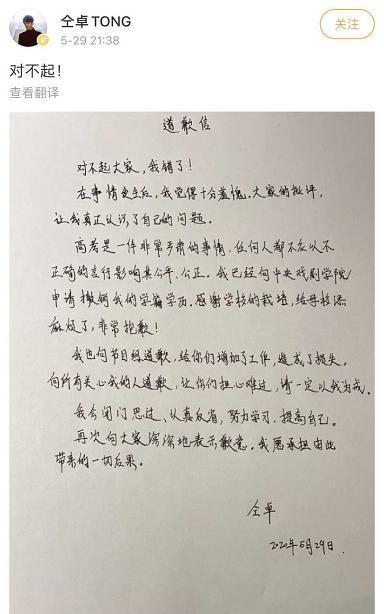 仝卓TONG
关注
5-29 21:38
对不起！
查看翻译
道歉信
对不起大家，我错了！
在事情发生后，我觉得十分羞愧。大家的批评，
让我真正认识了自己的问题。
高考是一件非常严肃的事情，任何人都不应以不
正确的言行影响其公平、公正。我已经向中央戏剧学院
申请撤销我的学籍学历。感谢学校的栽培，给母校添
麻烦了，非常抱歉！
我也向节目组道歉，给你们增加了工作，造成了损失。
向所有关心我的人道歉，让你们担心难过，请一定以我为戒。
我会闭门思过、认真反省，努力学习、提高自己。
再次向大家深深地表示歉意。我愿承担由此
带来的一切后果。
仝卓
2020年5月29日.